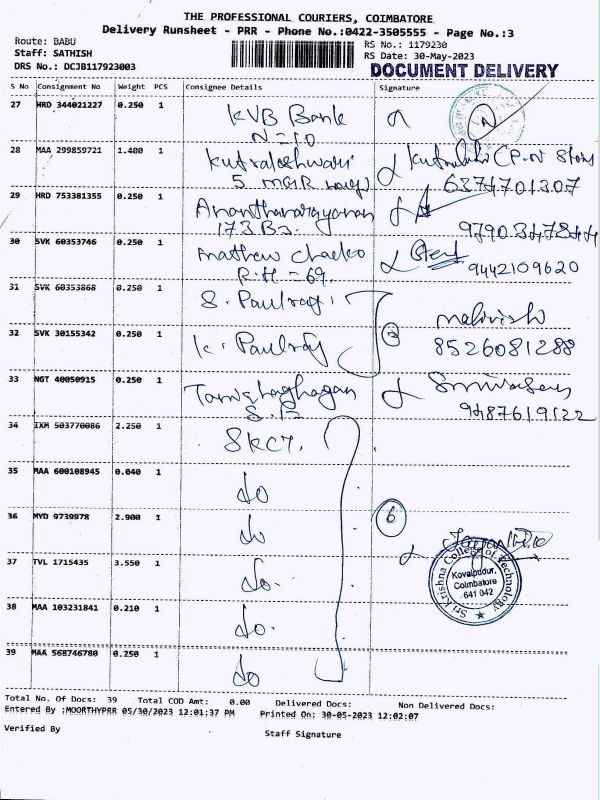 THE PROFESSIONAL COURIERS, COIMBATORE
Delivery Runsheet - PRR - Phone No.:0422-3505555 - Page No.:3
Route: BABU
RS No.: 1179230
Staff: SATHISH
RS Date: 30-May-2023
DRS No.: DCJB117923003
DOCUMENT DELIVERY
S No Consignment No Weight PCS Consignee Details Signature
27 HRD 344021227 0.250 1 KVB Bank
N=10
28 MAA 299859721 1.400 1 Kutraleshwari
5 MGR
6374701307
29 HRD 753381355 0.250 1 Ananthanarayanan
173 B3.
30 SVK 60353746 0.250 1 Mathew Chacko
P.H = 69
9442109620
31 SVK 60353868 0.250 1 S. Paulraj
32 SVK 30155342 0.250 1 K. Paulraj
2
8526081288
33 NGT 40050915 0.250 1
Srinivasan
9487619122
34 IXM 503770086 2.250 1 SKCT.
35 MAA 600108945 0.040 1 do
36 MYD 9739978 2.900 1 do
6
37 TVL 1715435 3.550 1 do.
Sri Krishna College of Technology
Kovaipudur,
Coimbatore
641 042
38 MAA 103231841 0.210 1 do.
39 MAA 568746780 0.250 1 do
Total No. Of Docs: 39 Total COD Amt: 0.00 Delivered Docs: Non Delivered Docs:
Entered By :MOORTHYPRR 05/30/2023 12:01:37 PM Printed On: 30-05-2023 12:02:07
Verified By
Staff Signature